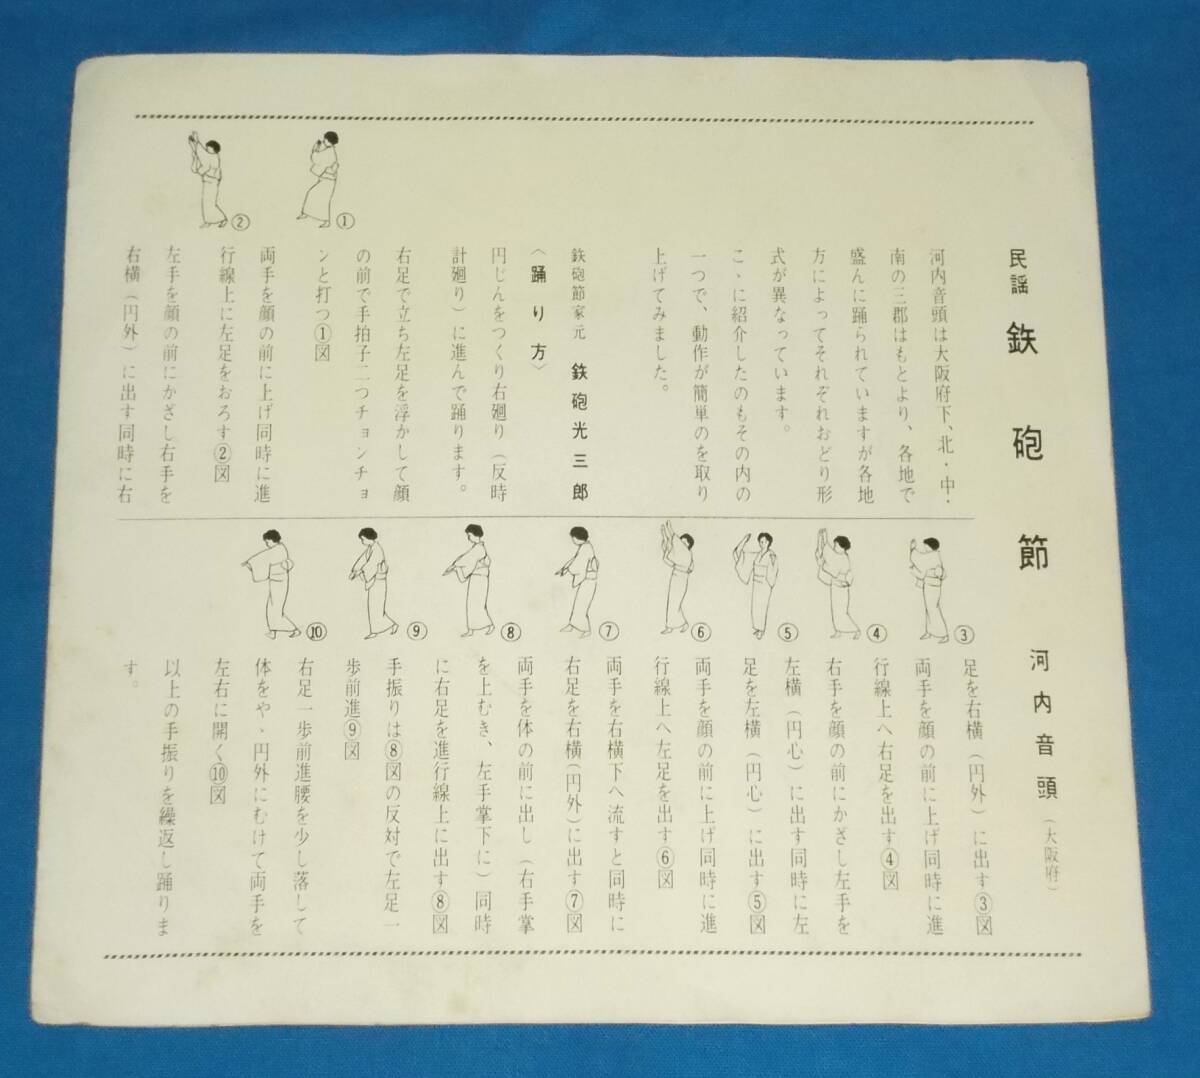 民謡 鉄砲節 河内音頭（大阪府）
河内音頭は大阪府下、北・中・
南の三郡はもとより、各地で
盛んに踊られていますが各地
方によってそれぞれおどり形
式が異なっています。
こゝに紹介したのもその内の
一つで、動作が簡単のを取り
上げてみました。
鉄砲節家元 鉄砲光三郎
〈踊り方〉
円じんをつくり右廻り（反時
計廻り）に進んで踊ります。
右足で立ち左足を浮かして顔
の前で手拍子二つチョンチョ
ンと打つ①図
両手を顔の前に上げ同時に進
行線上に左足をおろす②図
左手を顔の前にかざし右手を
右横（円外）に出す同時に右
①
②
足を右横（円外）に出す③図
両手を顔の前に上げ同時に進
行線上へ右足を出す④図
右手を顔の前にかざし左手を
左横（円心）に出す同時に左
足を左横（円心）に出す⑤図
両手を顔の前に上げ同時に進
行線上へ左足を出す⑥図
両手を右横下へ流すと同時に
右足を右横（円外）に出す⑦図
両手を体の前に出し（右手掌
を上むき、左手掌下に）同時
に右足を進行線上に出す⑧図
手振りは⑧図の反対で左足一
歩前進⑨図
右足一歩前進腰を少し落して
体をやゝ円外にむけて両手を
左右に開く⑩図
以上の手振りを繰返し踊りま
す。
③
④
⑤
⑥
⑦
⑧
⑨
⑩